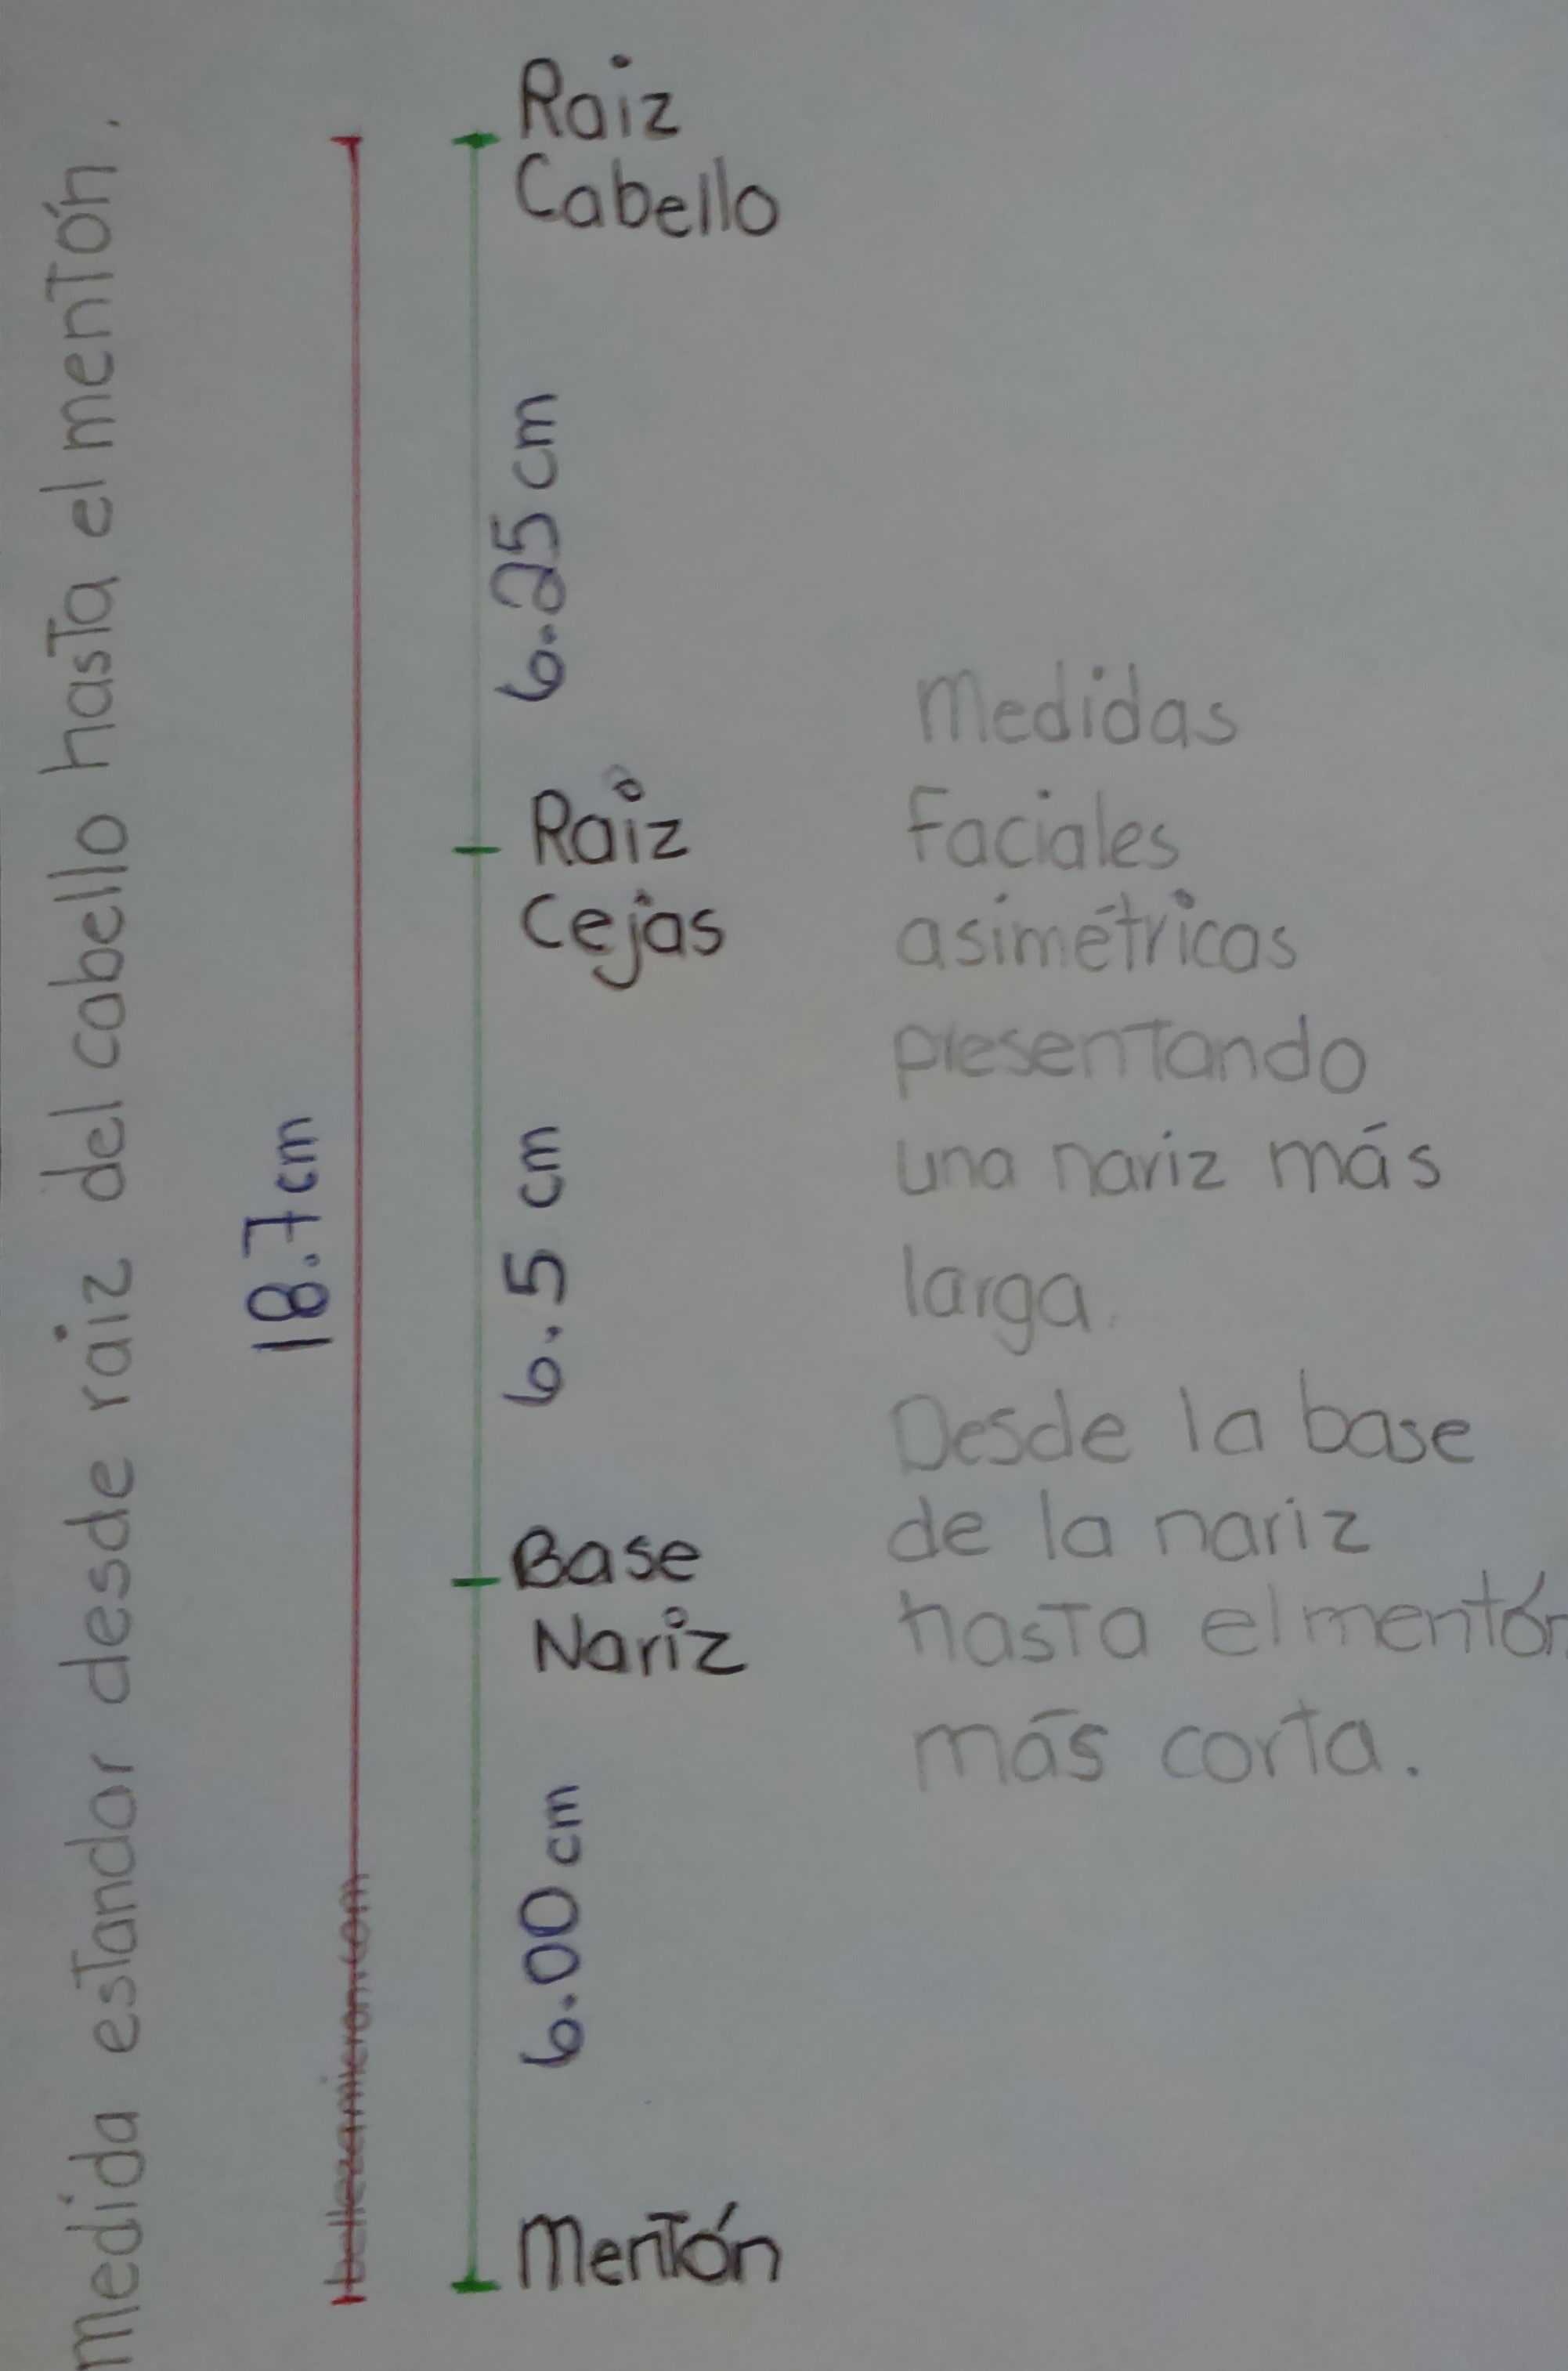 medida estandar desde raiz del cabello hasta el mentón.
18.7 cm
bellezamicron.com
Raiz
Cabello
6.25 cm
Raiz
Cejas
6.5 cm
Base
Nariz
6.00 cm
Mentón
Medidas
Faciales
asimétricas
presentando
una nariz más
larga.
Desde la base
de la nariz
hasta el mentón
más corta.